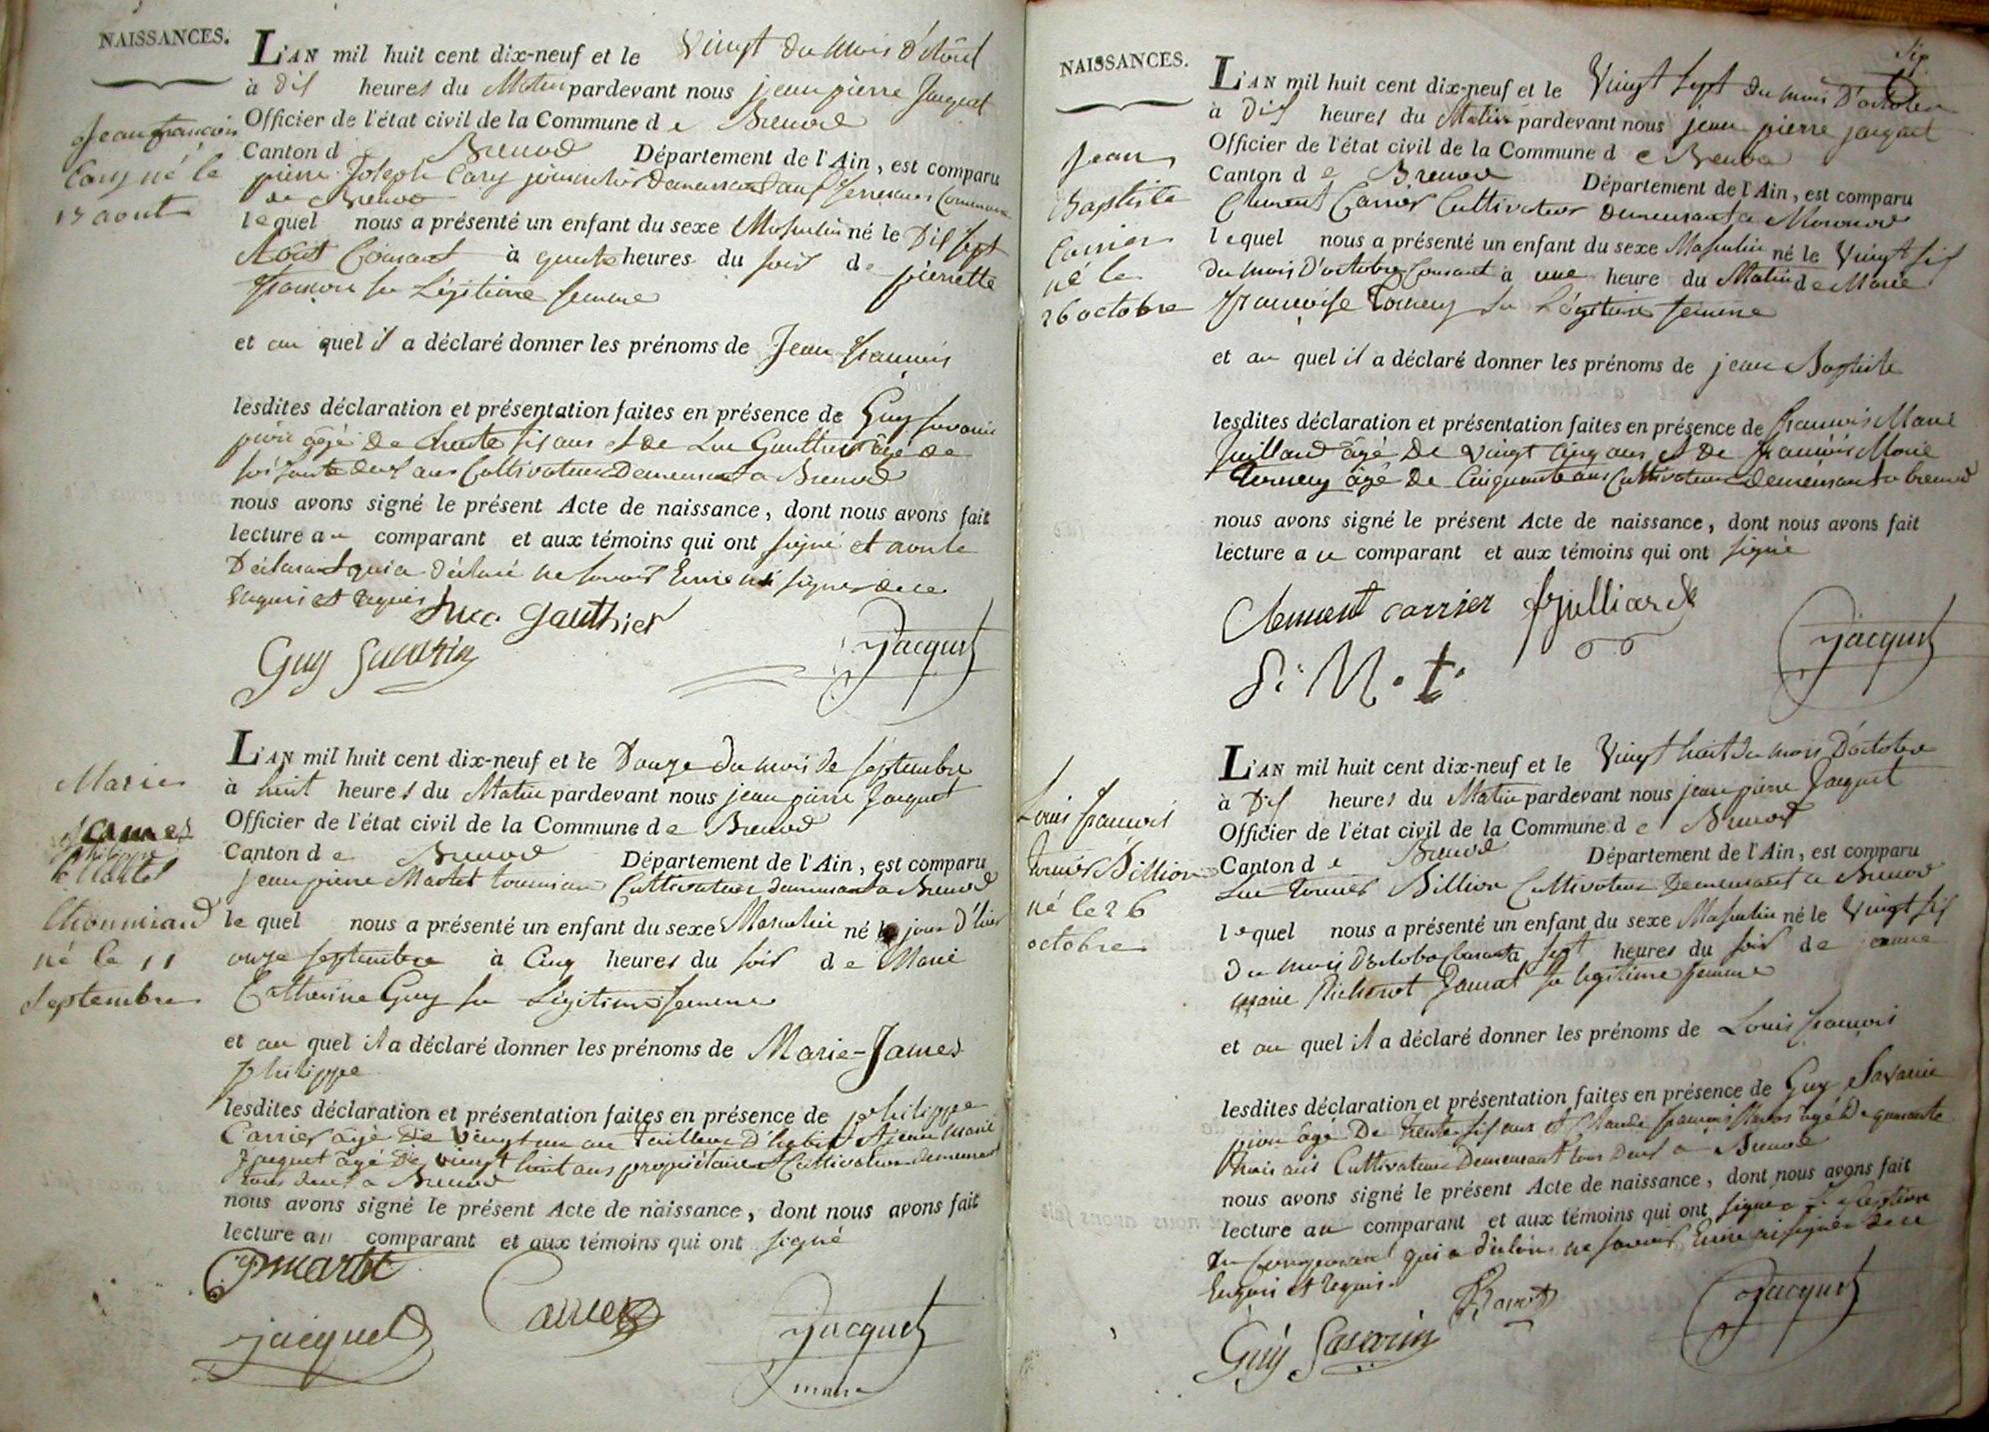 NAISSANCES.
L'AN mil huit cent dix-neuf et le Vingt du mois d'Août
à dix heures du Matin pardevant nous jean pierre Jacquet
Officier de l'état civil de la Commune de Brenod
Canton de Brenod Département de l'Ain, est comparu
pierre Joseph Cary
de Brenod
lequel nous a présenté un enfant du sexe Masculin né le Dix Sept
Août Courant à quatre heures du soir de pierrette
sa Légitime femme
et au quel il a déclaré donner les prénoms de Jean françois
lesdites déclaration et présentation faites en présence de Guy Savarin
agé de trente six ans et de Luc Gauthier âgé de
soixante deux ans Cultivateurs Demeurant a Brenod
nous avons signé le présent Acte de naissance, dont nous avons fait
lecture au comparant et aux témoins qui ont signé et non le
Déclarant qui a déclaré ne savoir Ecrire ni signer de ce
enquis et requis
Luc Gauthier
Guy Savarin
Jacquet
Jean françois
Cary né le
17 aout
L'AN mil huit cent dix-neuf et le Douze du mois de septembre
à huit heures du Matin pardevant nous jean pierre Jacquet
Officier de l'état civil de la Commune de Brenod
Canton de Brenod Département de l'Ain, est comparu
jean pierre Martel Cultivateur demeurant a Brenod
le quel nous a présenté un enfant du sexe Masculin né le jour d'hier
onze septembre à Cinq heures du soir de Marie
Catherine Guy sa Légitime femme
et au quel il a déclaré donner les prénoms de Marie-James
philippe
lesdites déclaration et présentation faites en présence de philippe
Carrier âgé de vingt un an Tailleur d'habit et jean marie
Jacquet âgé de vingt huit ans propriétaire et Cultivateur demeurant
tous deux a Brenod
nous avons signé le présent Acte de naissance, dont nous avons fait
lecture au comparant et aux témoins qui ont signé
Carrier
jacquet
Jacquet
maire
Marie
James
philippe
Martel
né le 11
septembre
NAISSANCES.
L'AN mil huit cent dix-neuf et le Vingt sept du mois D'octobre
à Dix heures du Matin pardevant nous jean pierre jacquet
Officier de l'état civil de la Commune de Brenod
Canton de Brenod Département de l'Ain, est comparu
Clement Carrier Cultivateur demeurant a
lequel nous a présenté un enfant du sexe Masculin né le Vingt six
du mois D'octobre Courant à une heure du Matin de Marie
françoise sa Légitime femme
et au quel il a déclaré donner les prénoms de jean Baptiste
lesdites déclaration et présentation faites en présence de francois Marie
Juillard âgé De vingt Cinq ans et De françois Marie
âgé De Cinquante ans Cultivateurs demeurant a brenod
nous avons signé le présent Acte de naissance, dont nous avons fait
lecture au comparant et aux témoins qui ont signé
Clement carrier
f. M. t.
Jacquet
Jean
Baptiste
Carrier
né le
26 octobre
L'AN mil huit cent dix-neuf et le Vingt huit du mois D'octobre
à Dix heures du Matin pardevant nous jean pierre Jacquet
Officier de l'état civil de la Commune de Brenod
Canton de Brenod Département de l'Ain, est comparu
Luc Billion Cultivateur Demeurant a Brenod
lequel nous a présenté un enfant du sexe Masculin né le Vingt six
du mois D'octobre Courant à sept heures du soir de jeanne
marie sa legitime femme
et au quel il a déclaré donner les prénoms de Louis françois
lesdites déclaration et présentation faites en présence de Guy Savarin
agé De trente six ans et Claude françois âgé De quarante
trois ans Cultivateurs Demeurant tous deux a Brenod
nous avons signé le présent Acte de naissance, dont nous avons fait
lecture au comparant et aux témoins qui ont signé a l'exception
du comparant qui a déclaré ne savoir Ecrire ni signer de ce
Enquis et Requis
Guy Savarin
Jacquet
Louis françois
Billion
né le 26
octobre